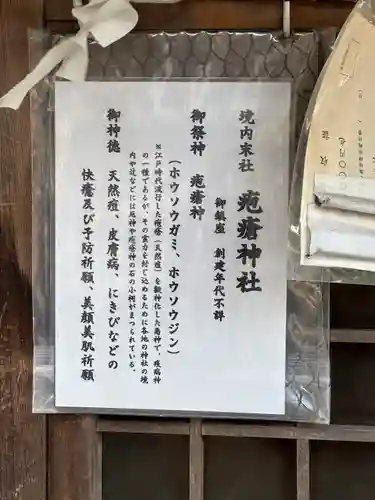 境内末社　疱瘡神社
御鎮座　創建年代不詳
御祭神　疱瘡神
（ホウソウガミ、ホウソウジン）
※江戸時代流行した疱瘡（天然痘）を擬神化した悪神で、疫病神
の一種であるが、その霊力を封じ込めるために各地の神社の境
内や辻などには厄神や疱瘡神の石の小祠がまつられている。
御神徳　天然痘、皮膚病、にきびなどの
快癒及び予防祈願、美顔美肌祈願